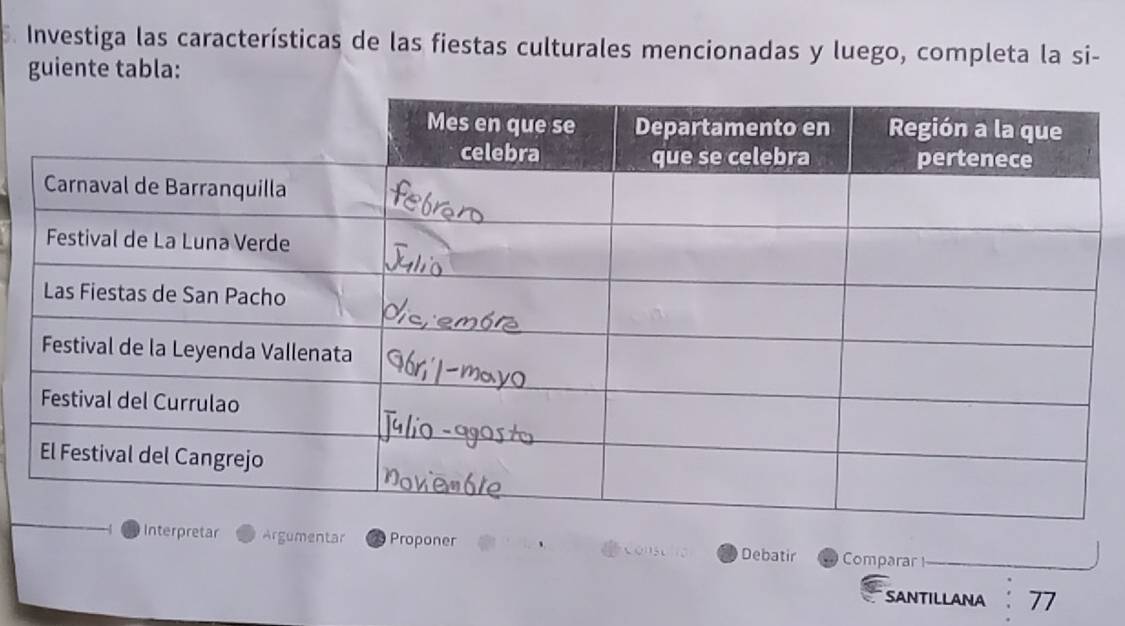 5. Investiga las características de las fiestas culturales mencionadas y luego, completa la si-
guiente tabla:
Mes en que se celebra Departamento en que se celebra Región a la que pertenece
Carnaval de Barranquilla febrero
Festival de La Luna Verde Julio
Las Fiestas de San Pacho diciembre
Festival de la Leyenda Vallenata abril-mayo
Festival del Currulao Julio-agosto
El Festival del Cangrejo noviembre
Interpretar Argumentar Proponer Debatir Comparar
SANTILLANA 77